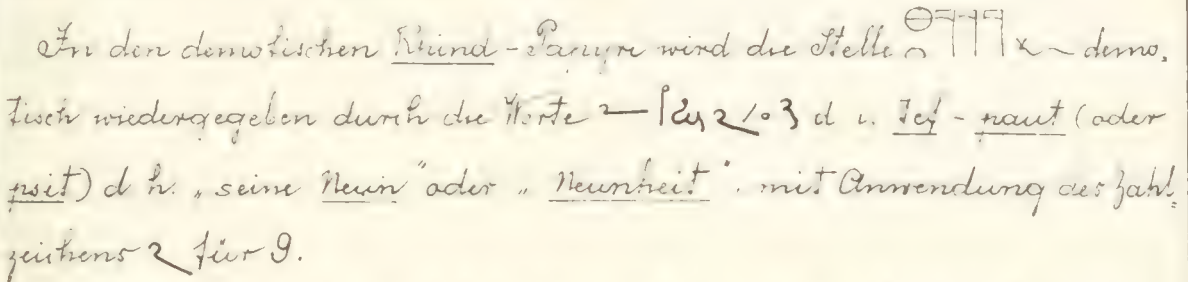 In den demotischen Rhind-Papyri wird die Stelle 𓐍𓏏𓊹𓊹𓊹 demo,
tisch wiedergegeben durch die Worte d i. Tef-paut (oder
psit) d h. „seine Neun" oder „Neunheit". mit Anwendung des Zahl,
zeichens für 9.